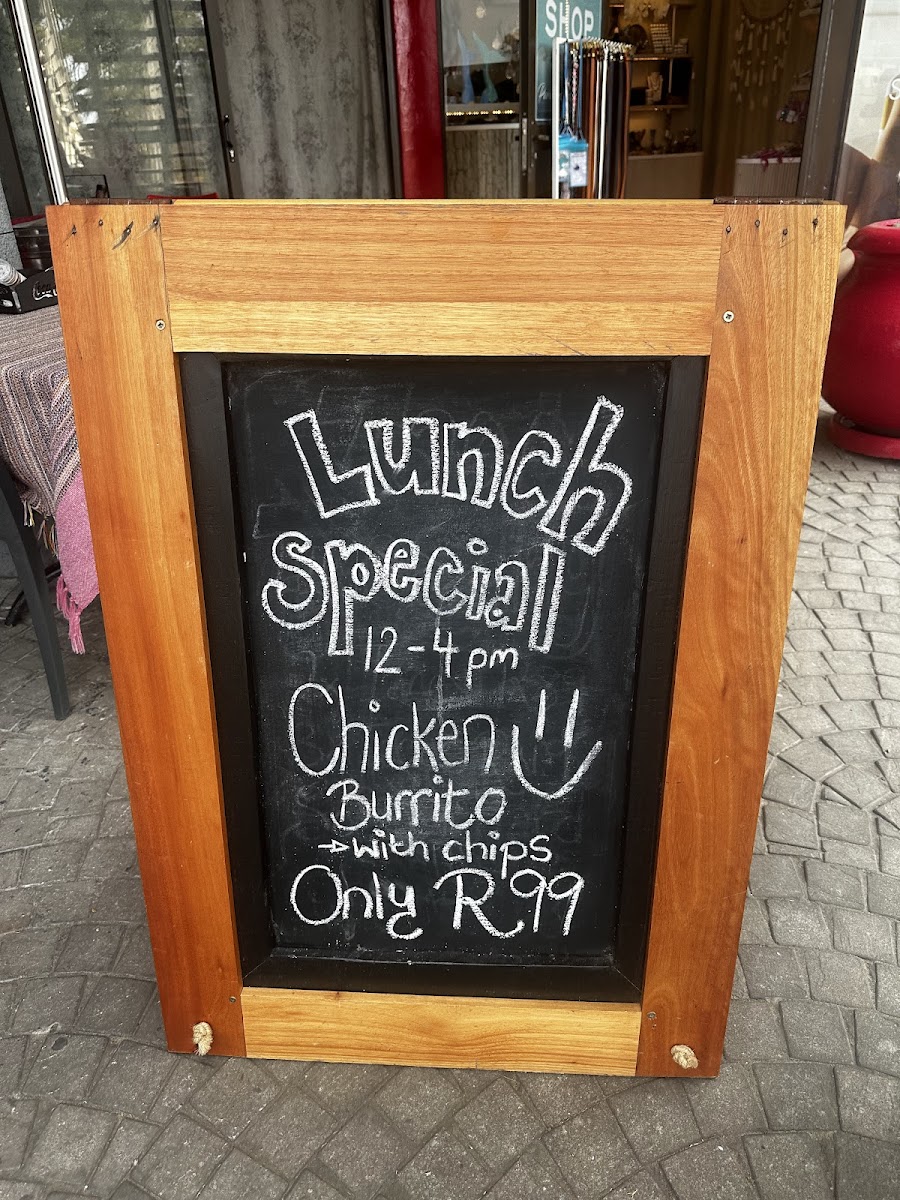 SHOP
Lunch
Special
12-4pm
Chicken
Burrito
→with chips
Only R99